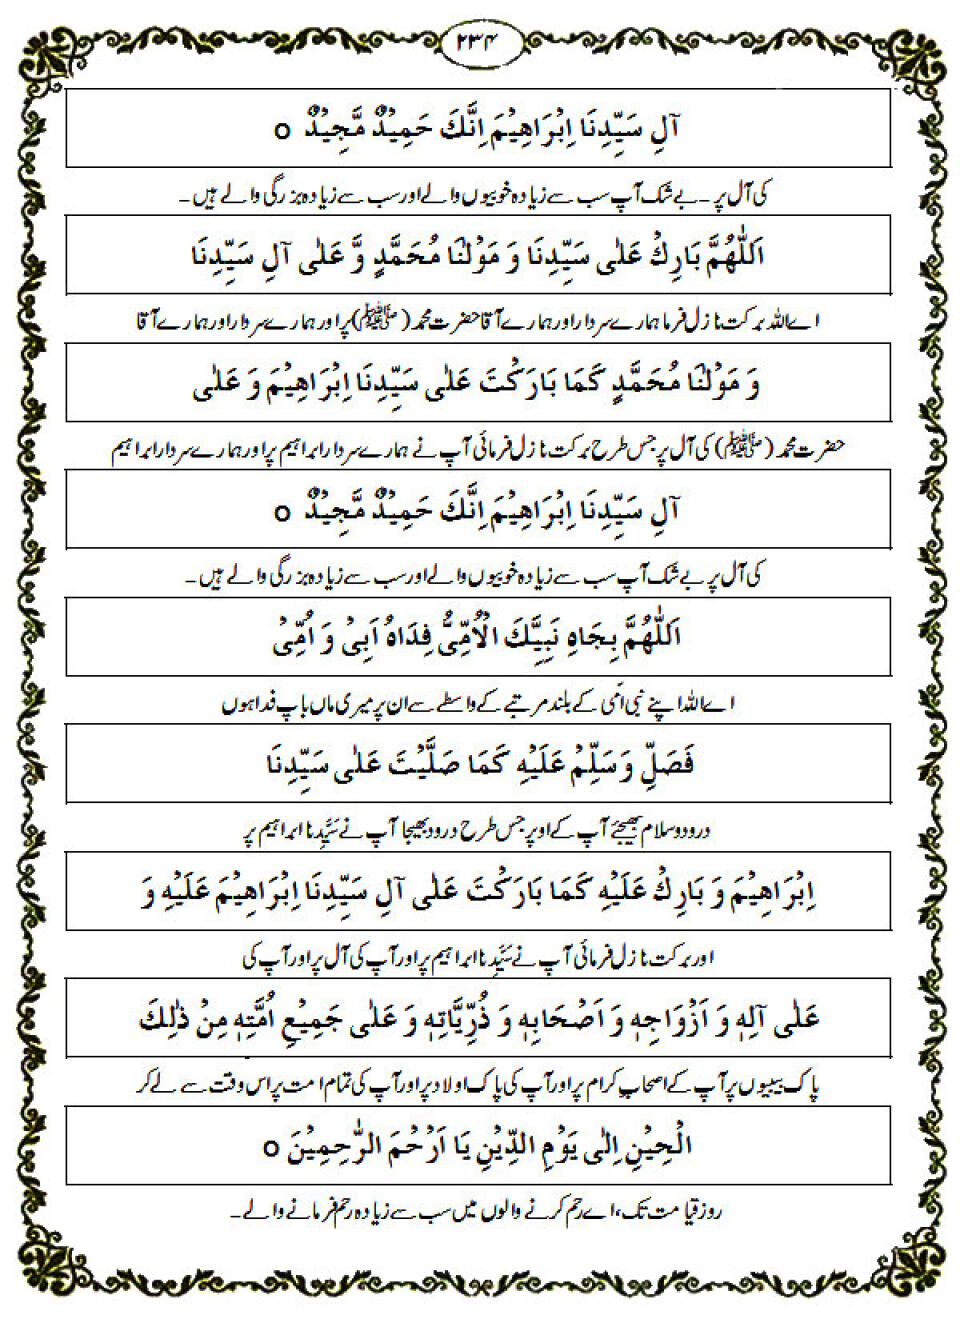 ۲۳۴
آلِ سَيِّدِنَا اِبْرَاهِيْمَ اِنَّكَ حَمِيْدٌ مَّجِيْدٌ o
کی آل پر ۔ بے شک آپ سب سے زیادہ خوبیوں والے اور سب سے زیادہ بزرگی والے ہیں ۔
اَللّٰهُمَّ بَارِكْ عَلٰى سَيِّدِنَا وَ مَوْلٰنَا مُحَمَّدٍ وَّ عَلٰى آلِ سَيِّدِنَا
اے اللہ برکت نازل فرما ہمارے سردار اور ہمارے آقا حضرت محمد (ﷺ) پر اور ہمارے سردار اور ہمارے آقا
وَ مَوْلٰنَا مُحَمَّدٍ كَمَا بَارَكْتَ عَلٰى سَيِّدِنَا اِبْرَاهِيْمَ وَ عَلٰى
حضرت محمد (ﷺ) کی آل پر جس طرح برکت نازل فرمائی آپ نے ہمارے سردار ابراہیم پر اور ہمارے سردار ابراہیم
آلِ سَيِّدِنَا اِبْرَاهِيْمَ اِنَّكَ حَمِيْدٌ مَّجِيْدٌ o
کی آل پر بے شک آپ سب سے زیادہ خوبیوں والے اور سب سے زیادہ بزرگی والے ہیں ۔
اَللّٰهُمَّ بِجَاهِ نَبِيِّكَ الْاُمِّيُّ فِدَاهُ اَبِىْ وَ اُمِّىْ
اے اللہ اپنے نبی امّی کے بلند مرتبے کے واسطے سے ان پر میری ماں باپ فدا ہوں
فَصَلِّ وَسَلِّمْ عَلَيْهِ كَمَا صَلَّيْتَ عَلٰى سَيِّدِنَا
درود و سلام بھیجئے آپ کے اوپر جس طرح درود بھیجا آپ نے سَیِّدنا ابراہیم پر
اِبْرَاهِيْمَ وَ بَارِكْ عَلَيْهِ كَمَا بَارَكْتَ عَلٰى آلِ سَيِّدِنَا اِبْرَاهِيْمَ عَلَيْهِ وَ
اور برکت نازل فرمائی آپ نے سَیِّدنا ابراہیم پر اور آپ کی آل پر اور آپ کی
عَلٰى آلِهٖ وَ اَزْوَاجِهٖ وَ اَصْحَابِهٖ وَ ذُرِّيَّاتِهٖ وَ عَلٰى جَمِيْعِ اُمَّتِهٖ مِنْ ذٰلِكَ
پاک بیبیوں پر آپ کے اصحابِ کرام پر اور آپ کی پاک اولاد پر اور آپ کی تمام امت پر اس وقت سے لے کر
الْحِيْنِ اِلٰى يَوْمِ الدِّيْنِ يَا اَرْحَمَ الرّٰحِمِيْنَ o
روز قیامت تک، اے رحم کرنے والوں میں سب سے زیادہ رحم فرمانے والے ۔